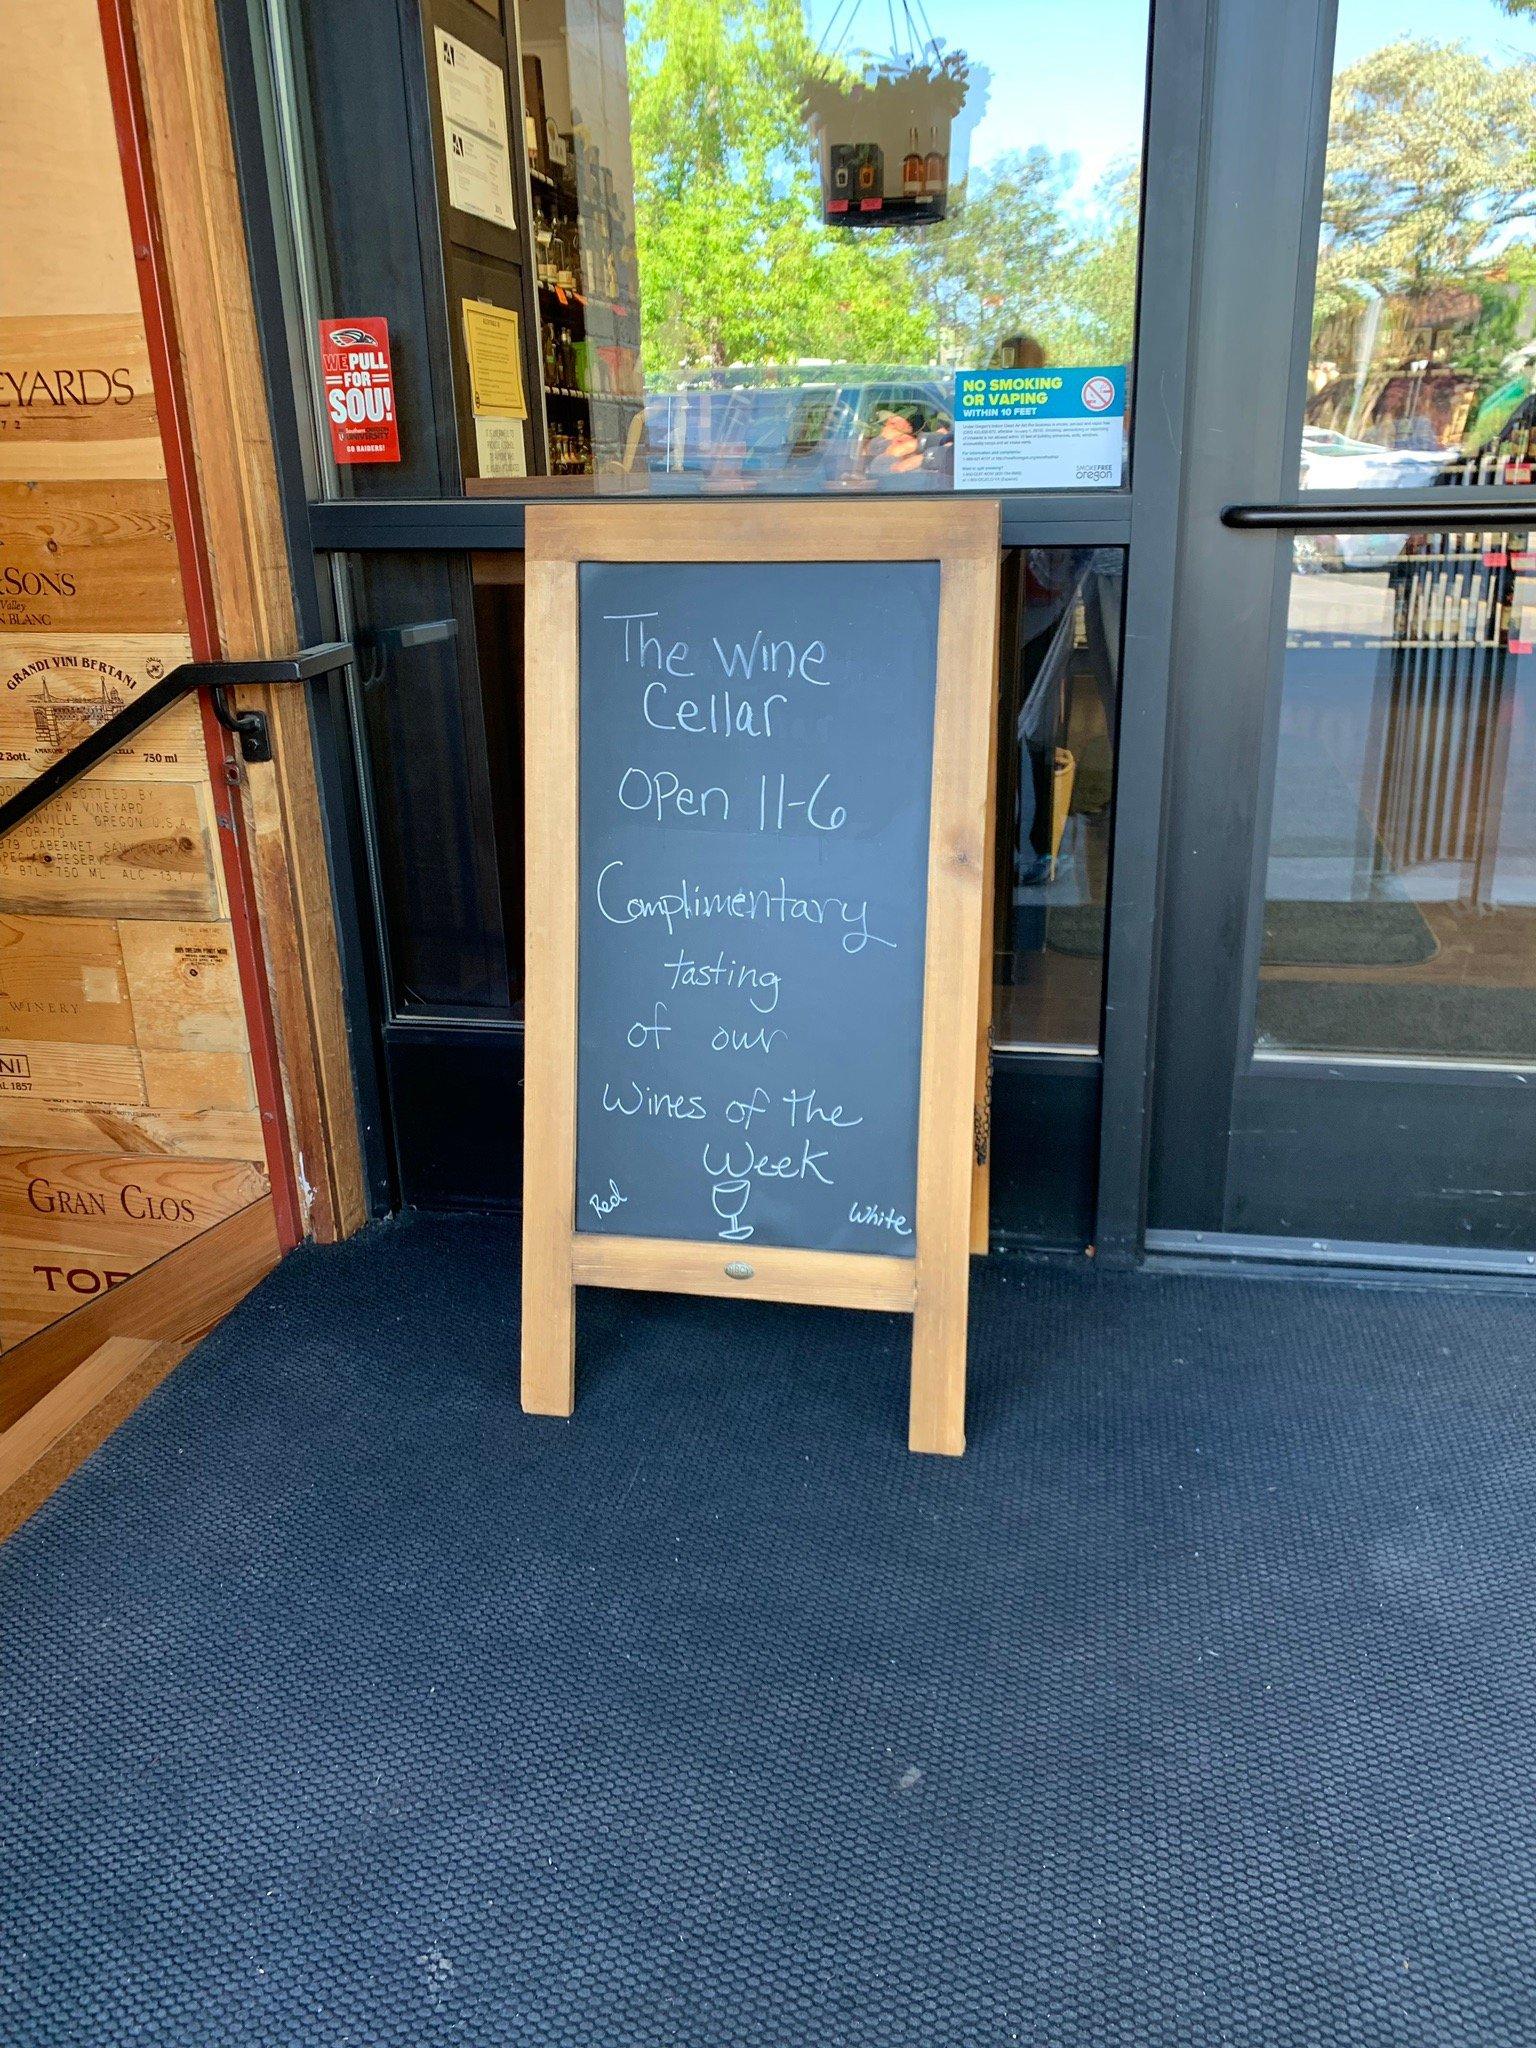 The Wine
Cellar
Open 11-6
Complimentary
tasting
of our
Wines of the
Week
Red
White
WE PULL
FOR
SOU!
Southern OREGON
UNIVERSITY
GO RAIDERS!
NO SMOKING
OR VAPING
WITHIN 10 FEET
SMOKEFREE
oregon
EYARDS
7 2
SONS
Valley
N BLANC
GRANDI VINI BERTANI
750 ml
BOTTLED BY
VIEW VINEYARD
ONVILLE, OREGON U.S.A.
-OR-70
979 CABERNET SAUVIGNON
SPECIAL RESERVE
12 BTL.-750 ML ALC -13.1
WINERY
NI
AL 1857
GRAN CLOS
TOR